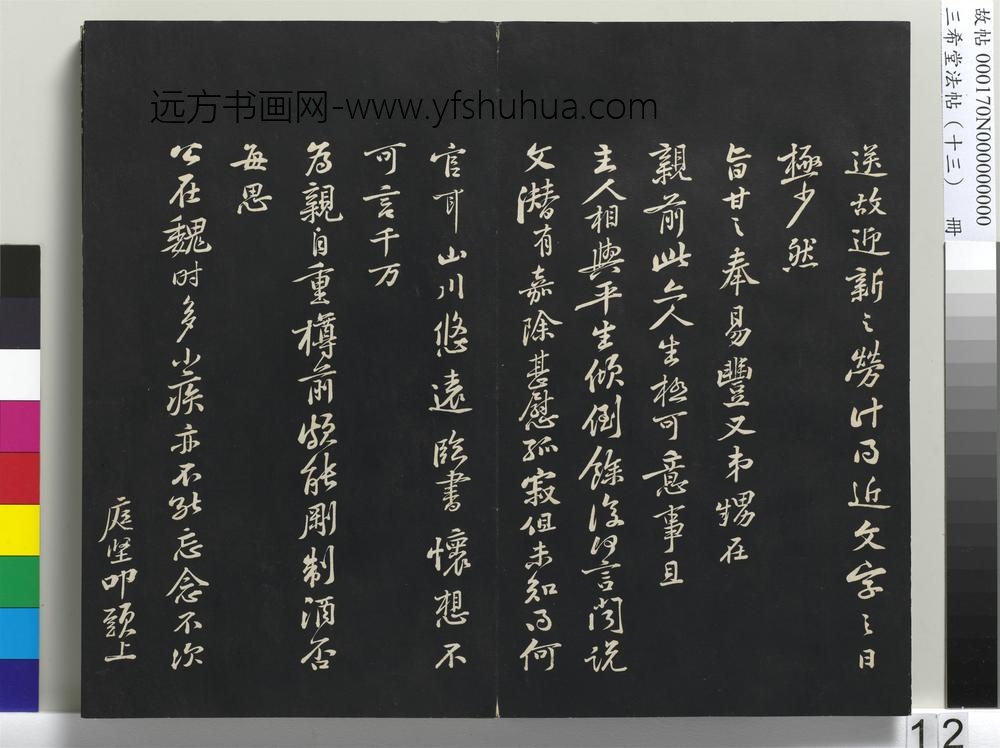 送故迎新之勞計日近文字之日
極少然
旨甘之奉易豐又弟甥在
親前此亦人生極可意事且
主人相與平生傾倒餘復何言聞説
文潛有嘉除甚慰孤寂但未知得何
官耳山川悠遠臨書懷想不
可言千万
為親自重樽前頗能剛制酒否
每思
公在魏时多小疾亦不能忘念不次
庭堅叩頭上
远方书画网-www.yfshuhua.com
故帖 000170N000000000
三希堂法帖（十三） 冊
12